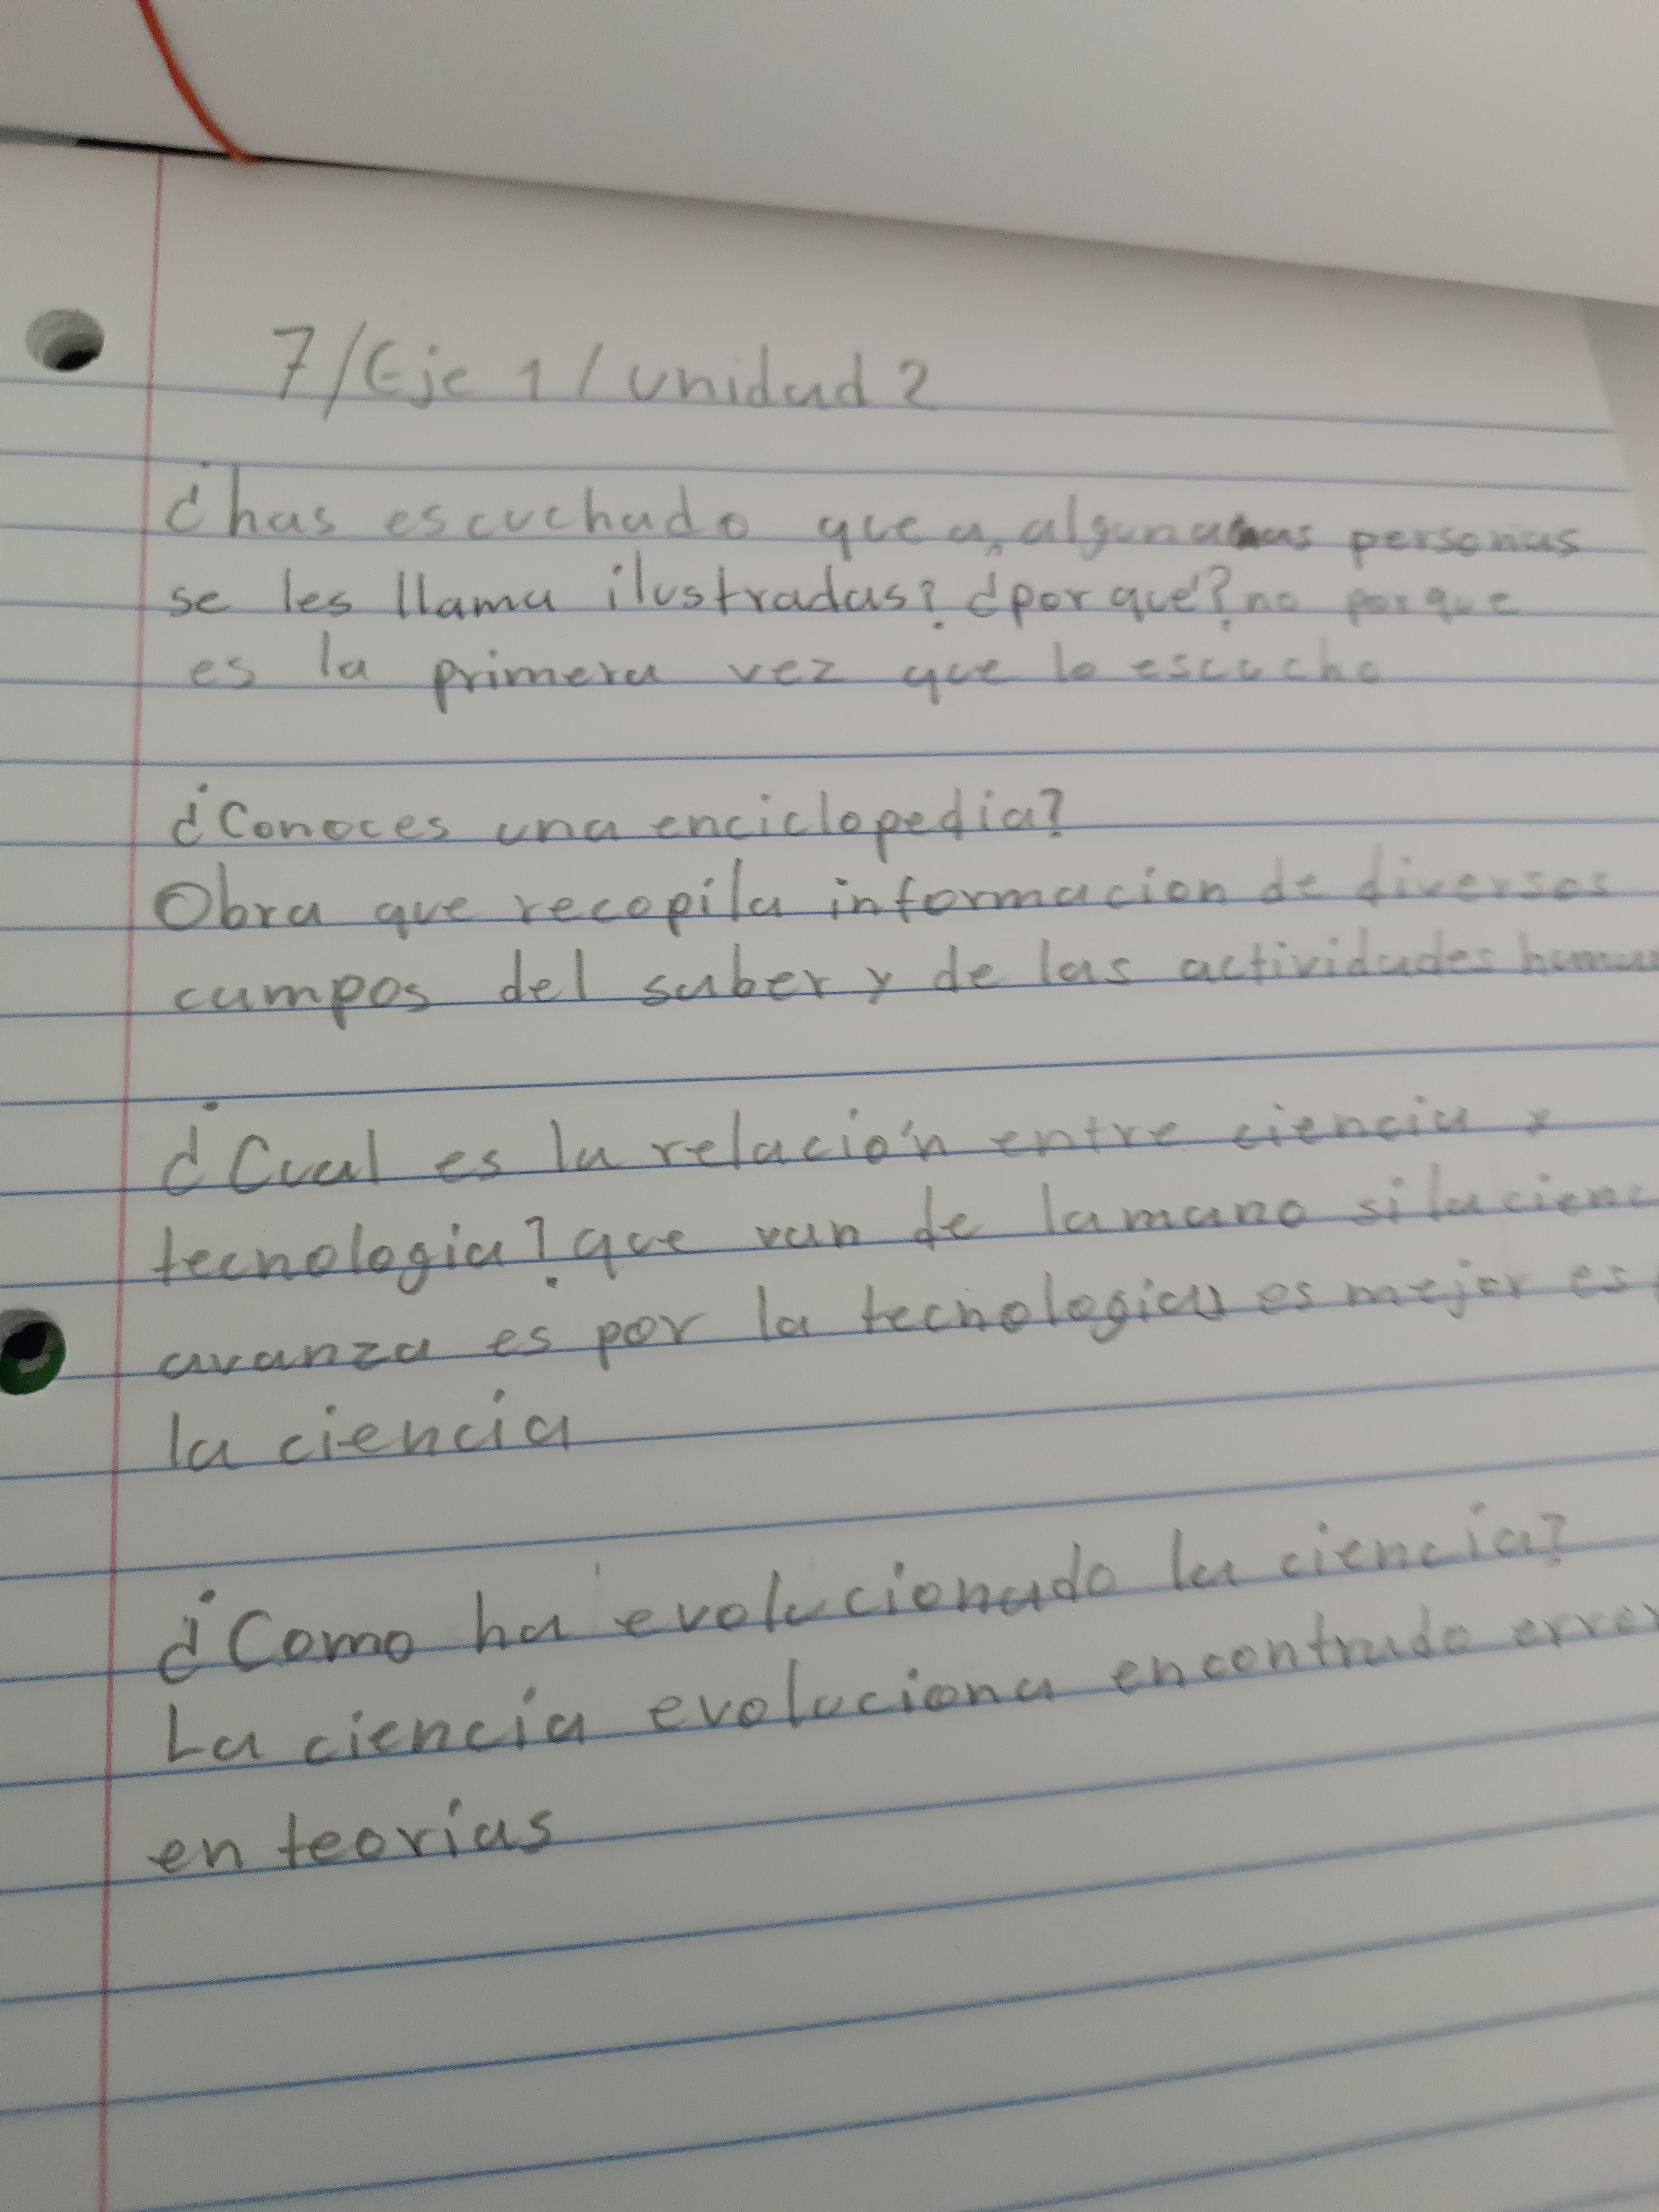 7/Eje 1/unidad 2
¿has escuchado que a algunas personas
se les llama ilustradas? ¿por qué? no porque
es la primera vez que lo escucho
¿Conoces una enciclopedia?
Obra que recopila informacion de diversos
campos del saber y de las actividades
¿Cual es la relación entre ciencia y
tecnologia? que van de la mano si la
avanza es por la tecnologia es mejor es
la ciencia
¿Como ha evolucionado la ciencia?
La ciencia evoluciona encontrado
en teorias